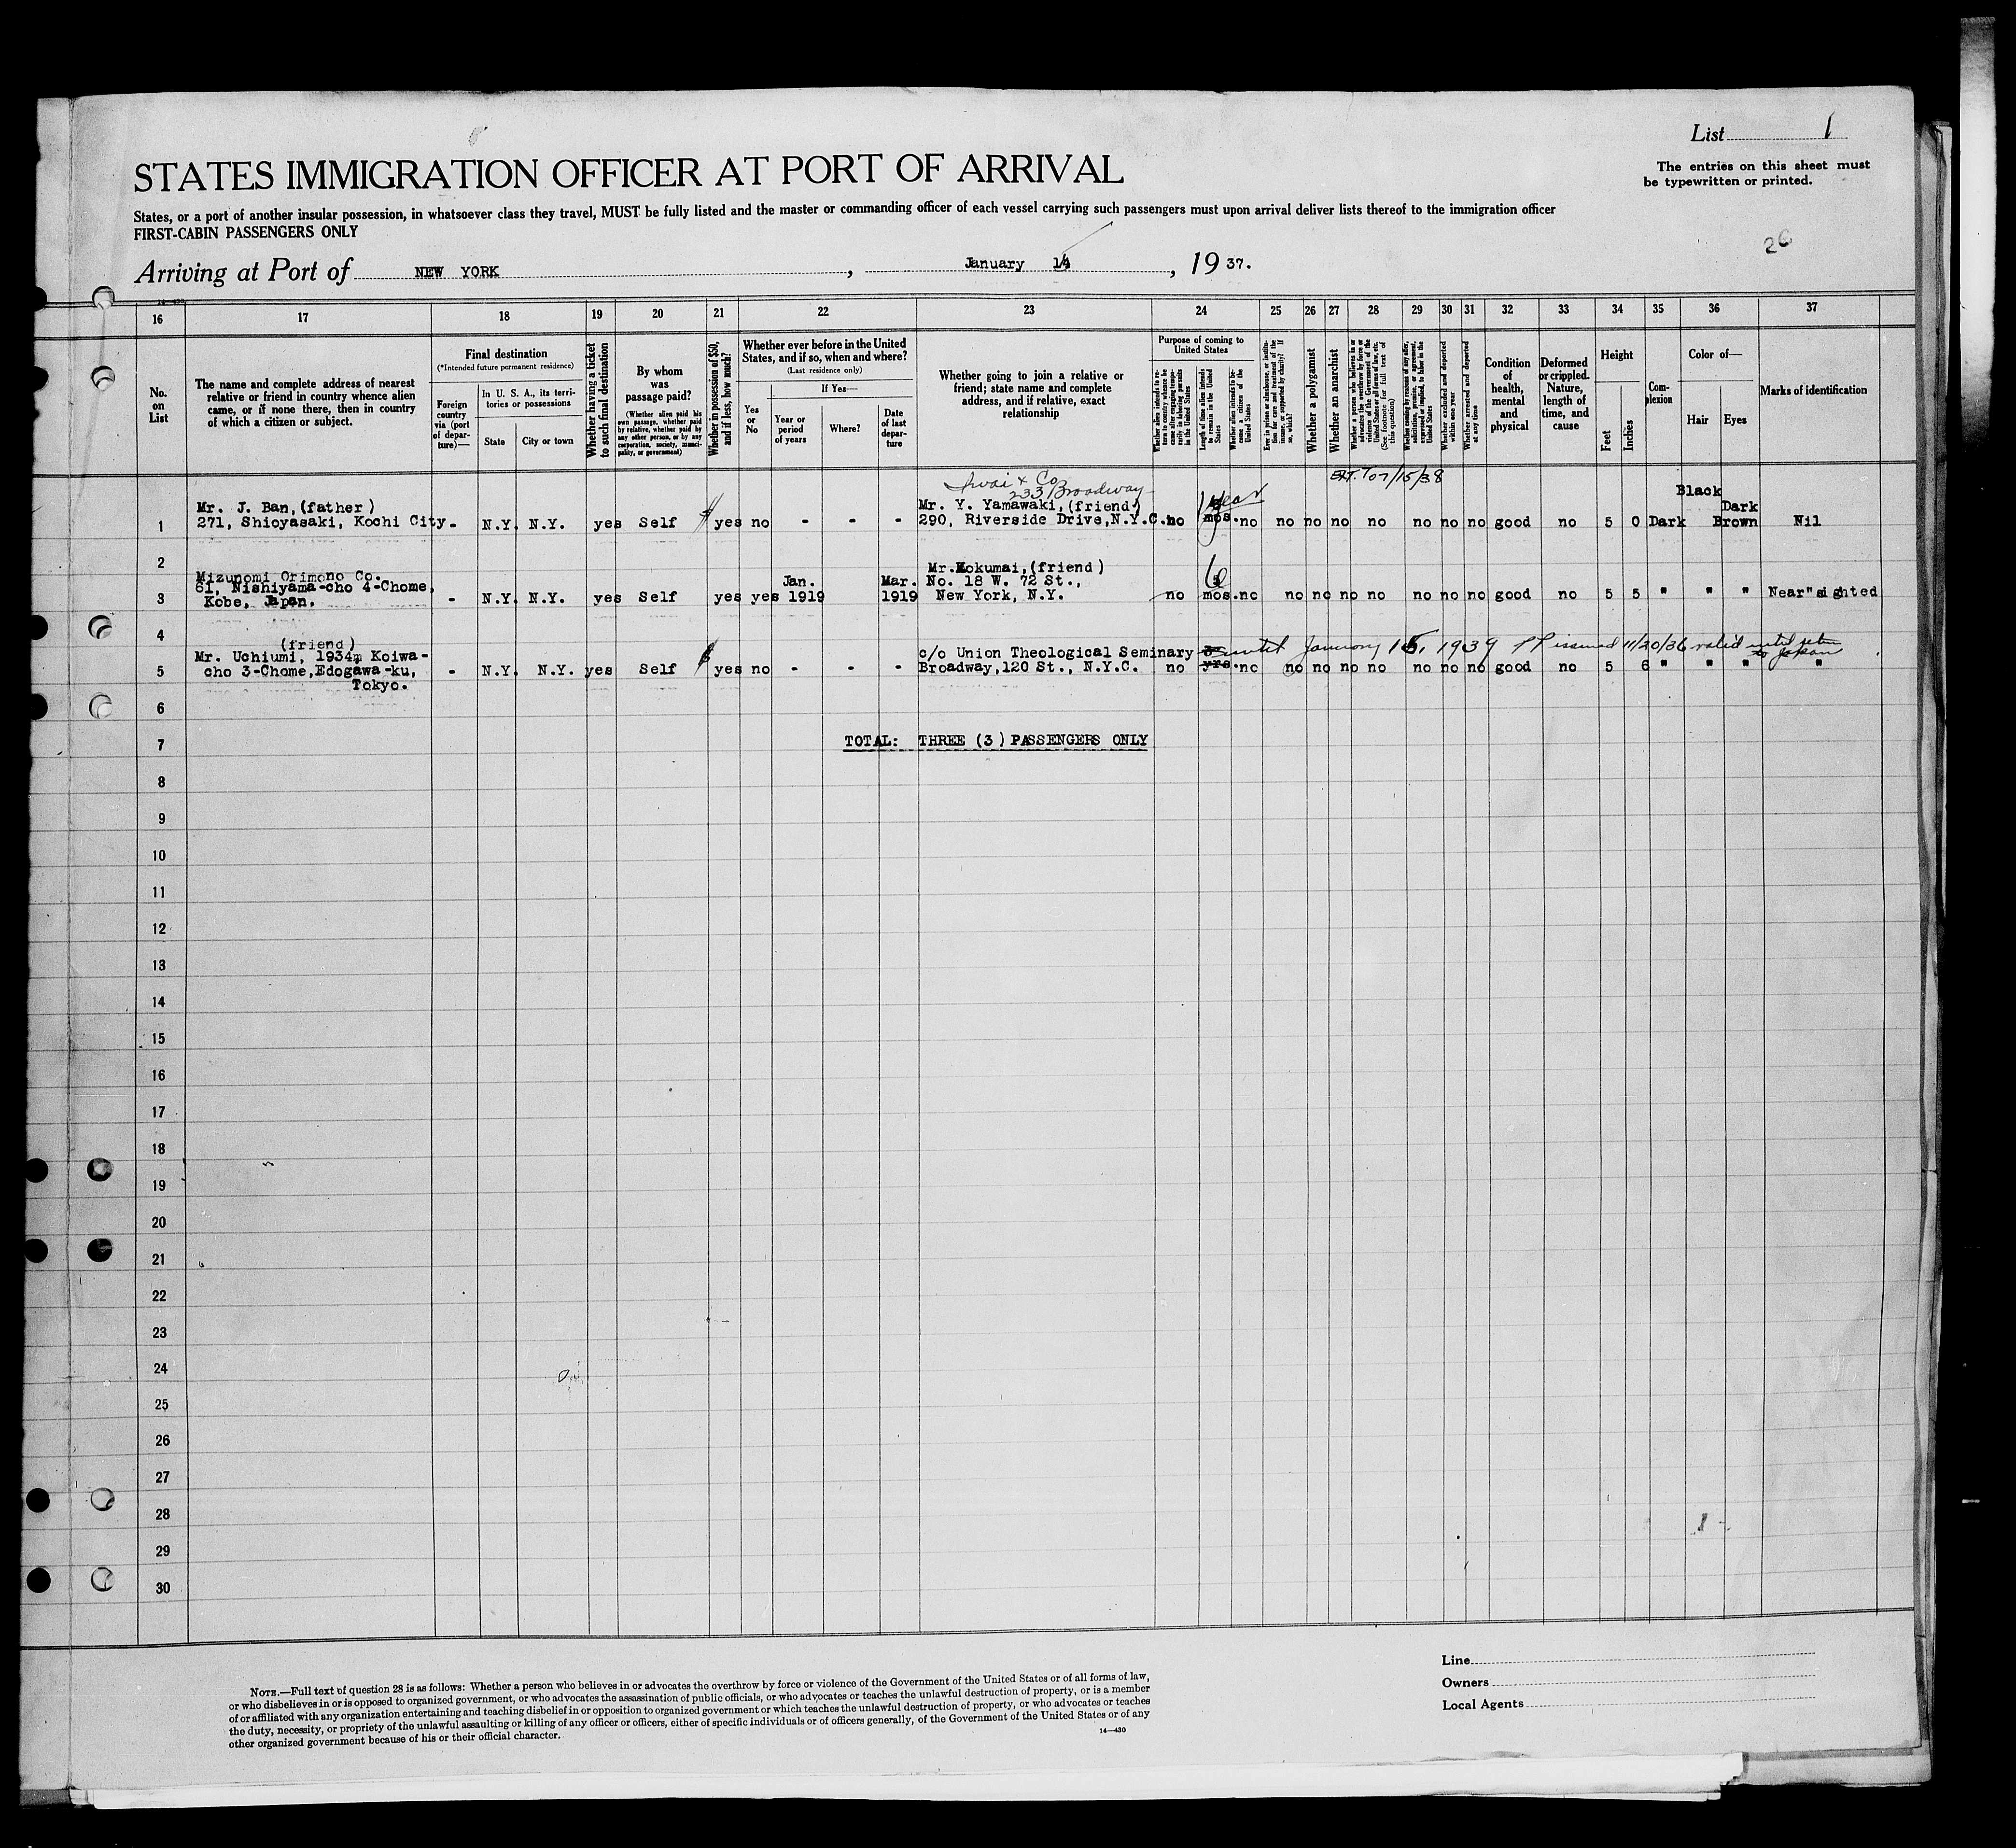 List 1
The entries on this sheet must
be typewritten or printed.
STATES IMMIGRATION OFFICER AT PORT OF ARRIVAL
States, or a port of another insular possession, in whatsoever class they travel, MUST be fully listed and the master or commanding officer of each vessel carrying such passengers must upon arrival deliver lists thereof to the immigration officer
FIRST-CABIN PASSENGERS ONLY
26
Arriving at Port of NEW YORK, January 14, 1937.
16 17 18 19 20 21 22 23 24 25 26 27 28 29 30 31 32 33 34 35 36 37
No. on List
The name and complete address of nearest
relative or friend in country whence alien
came, or if none there, then in country
of which a citizen or subject.
Final destination
(*Intended future permanent residence)
Foreign country via (port of departure)—
In U. S. A., its territories or possessions
State
City or town
Whether having a ticket to such final destination
By whom was passage paid?
(Whether alien paid his own passage, whether paid by relative, whether paid by any other person, or by any corporation, society, municipality, or government)
Whether in possession of $50, and if less, how much?
Whether ever before in the United States, and if so, when and where?
(Last residence only)
Yes or No
If Yes—
Year or period of years
Where?
Date of last departure
Whether going to join a relative or
friend; state name and complete
address, and if relative, exact
relationship
Purpose of coming to United States
Length of time alien intends to remain in the United States
Whether alien intends to become a citizen of the United States
Whether a polygamist
Whether an anarchist
(See footnote for full text of this question)
Whether arrested and deported at any time
Condition of health, mental and physical
Deformed or crippled. Nature, length of time, and cause
Height
Feet
Inches
Complexion
Color of—
Hair
Eyes
Marks of identification
Iwai & Co
233 Broadway
EXT. TO 7/15/38
1 Mr. J. Ban, (father)
271, Shioyasaki, Kochi City - N.Y. N.Y. yes Self yes no - - - Mr. Y. Yamawaki, (friend)
290, Riverside Drive, N.Y.C. no 1 year mos. no no no no no no no no good no 5 0 Dark Black Dark Brown Nil
2
3 Mizunomi Orimono Co.
61, Nishiyama-cho 4-Chome,
Kobe, Japan. - N.Y. N.Y. yes Self yes yes Jan. 1919 Mar. 1919 Mr. Kokumai, (friend)
No. 18 W. 72 St.,
New York, N.Y. no 6 mos. no no no no no no no no good no 5 5 " " " Near sighted
4
5 (friend)
Mr. Uchiumi, 1934, Koiwa-
cho 3-Chome, Edogawa-ku,
Tokyo. - N.Y. N.Y. yes Self yes no - - - c/o Union Theological Seminary
Broadway, 120 St., N.Y.C. no 3 yrs. no no no no no no no no good no 5 6 " " " "
until January 15, 1939 PP issued 11/20/36 valid until return to Japan
6
7 TOTAL: THREE (3) PASSENGERS ONLY
8
9
10
11
12
13
14
15
16
17
18
19
20
21
22
23
24
25
26
27
28
29
30
Line
Owners
Local Agents
NOTE.—Full text of question 28 is as follows: Whether a person who believes in or advocates the overthrow by force or violence of the Government of the United States or of all forms of law,
or who disbelieves in or is opposed to organized government, or who advocates the assassination of public officials, or who advocates or teaches the unlawful destruction of property, or is a member
of or affiliated with any organization entertaining and teaching disbelief in or opposition to organized government or which teaches the unlawful destruction of property, or who advocates or teaches
the duty, necessity, or propriety of the unlawful assaulting or killing of any officer or officers, either of specific individuals or of officers generally, of the Government of the United States or of any
other organized government because of his or their official character.
14—430